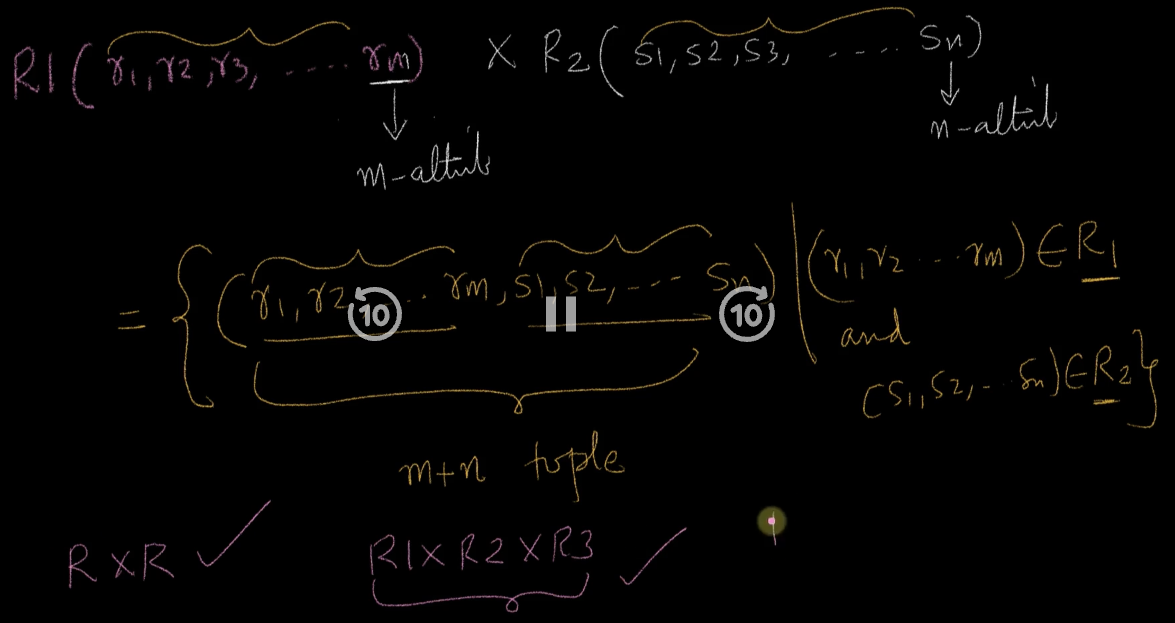 R1(r1,r2,r3, ..... rm) X R2(S1,S2,S3, ..... Sn)
m-attrib n-attrib
= {(r1,r2, ... rm,S1,S2, --- Sn) | (r1,r2 ... rm) ∈ R1
10 10
and
(S1,S2, -- Sn) ∈ R2}
m+n tuple
R X R ✓ R1 X R2 X R3 ✓